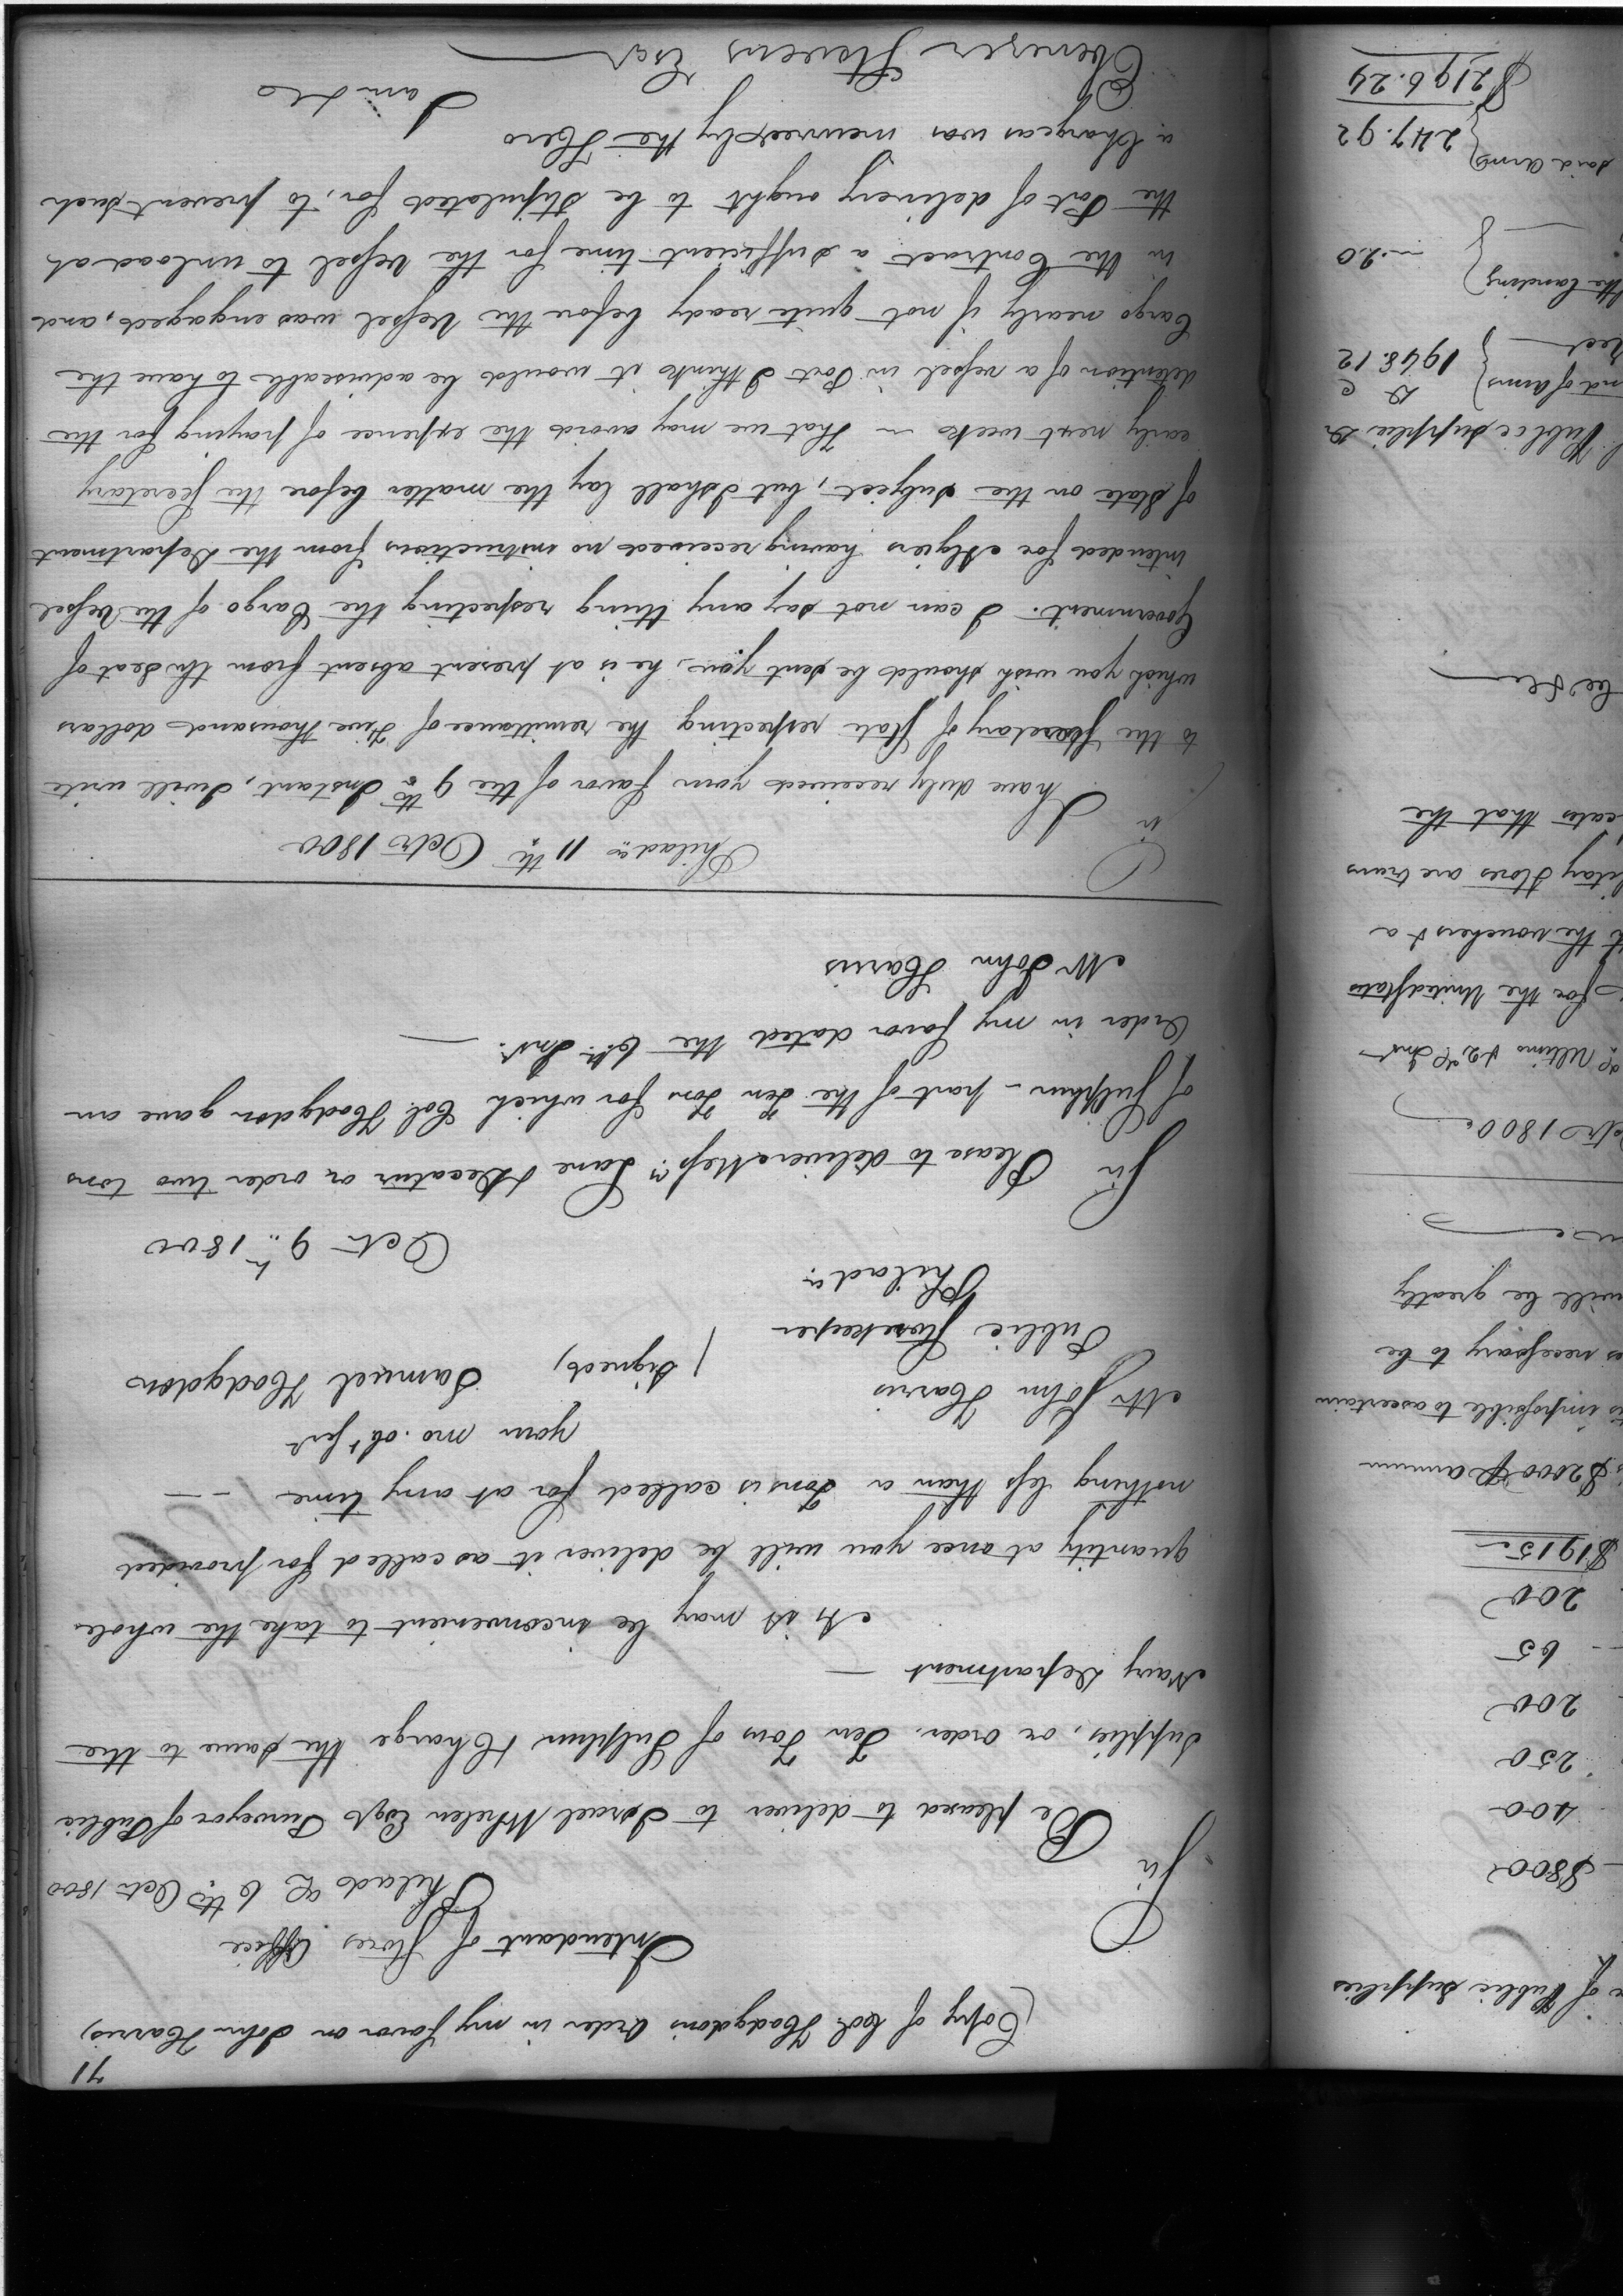 71
(Copy of Col. Hodgdon's Order in my favor on John Harris)
Intendant of Stores Office
Philada 6th Octr 1800
Sir
Be pleased to deliver to Israel Whelen Esqr Purveyor of Public
Supplies, or order, Ten Tons of Sulphur & Charge the same to the
Navy Department —
As it may be inconvenient to take the whole
quantity at once you will be deliver it as called for provided
nothing less than a Ton is called for at any time — —
your mo. obt sert
Mr John Harris
(signed) Samuel Hodgdon
Public Storekeeper
Philada
Octr 9th 1800
Sir Please to deliver Messrs Lane & Decatur or order two tons
of Sulphur - part of the Ten Tons for which Col. Hodgdon gave an
Order in my favor dated the 6th Inst. —
Mr John Harris
Philada 11th Octr 1800
Sir
I have duly received your favor of the 9th Instant, I will write
to the Secretary of State respecting the remittance of Five thousand dollars
which you wish should be sent you, he is at present absent from the Seat of
Government. I can not say any thing respecting the Cargo of the Vessel
intended for Algiers having received no instructions from the Department
of State on the subject, but I shall lay the matter before the Secretary
early next week — That we may avoid the expence of paying for the
detention of a vessel in Port I think it would be adviseable to have the
Cargo nearly if not quite ready before the Vessel was engaged, and
in the Contract a sufficient time for the Vessel to unload at
the Port of delivery ought to be stipulated for, to prevent such
a Charge as was incurred by the Hero
I am &c
Ebenezer Stevens Esqr
of Public Supplies
$800
400
250
200
65
200
$1915
$2000 P annum
impossible to ascertain
necessary to be
will be greatly
Octr 1800
Ultimo & 2d Inst
for the United States
the vouchers & a
Stores are trans
that the
Public Supplies Dr
D C
and of Arms } 1948.12
the landing } 20
said Arms } 247.92
$2196.24